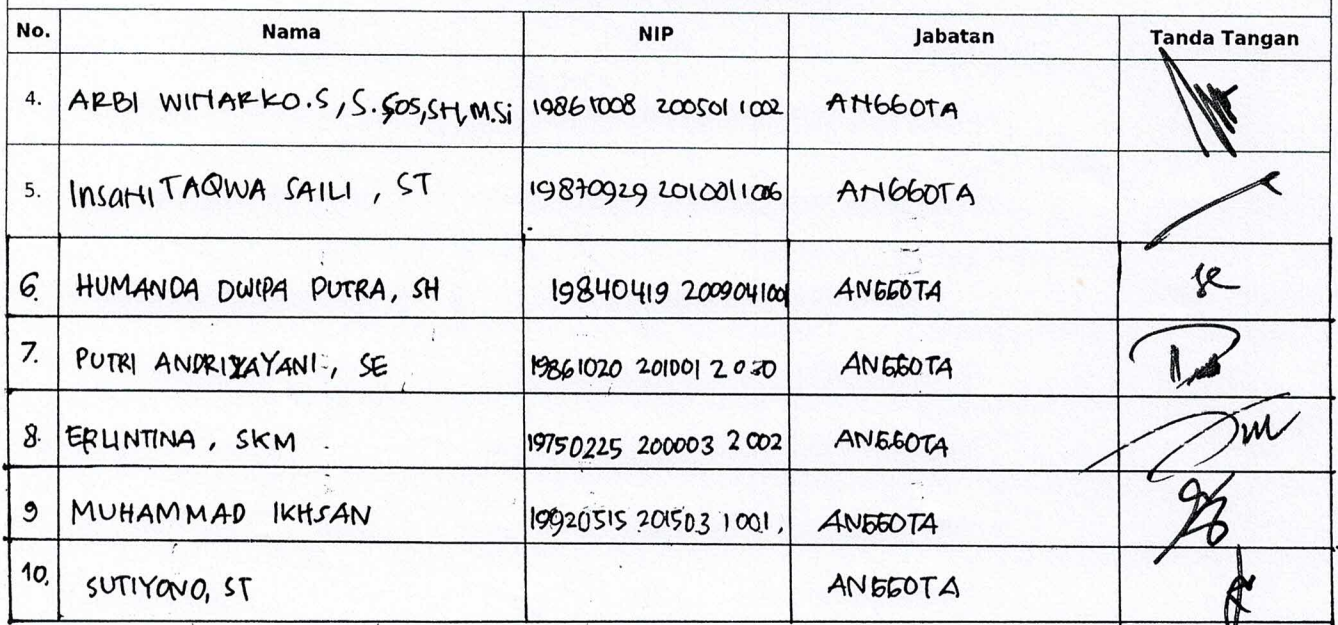 No. Nama NIP Jabatan Tanda Tangan
4. ARBI WIHARKO.S, S.SOS,SH,M.Si 19861008 200501 1002 ANGGOTA
5. Insani TAQWA SAILI, ST 19870929 201001 1006 ANGGOTA
6. HUMANDA DWIPA PUTRA, SH 19840419 200904100 ANGGOTA
7. PUTRI ANDRIYAYANI, SE 19861020 201001 2 030 ANGGOTA
8. ERLINTINA, SKM 19750225 200003 2 002 ANGGOTA
9 MUHAMMAD IKHSAN 19920515 201503 1 001, ANGGOTA
10. SUTIYONO, ST ANGGOTA